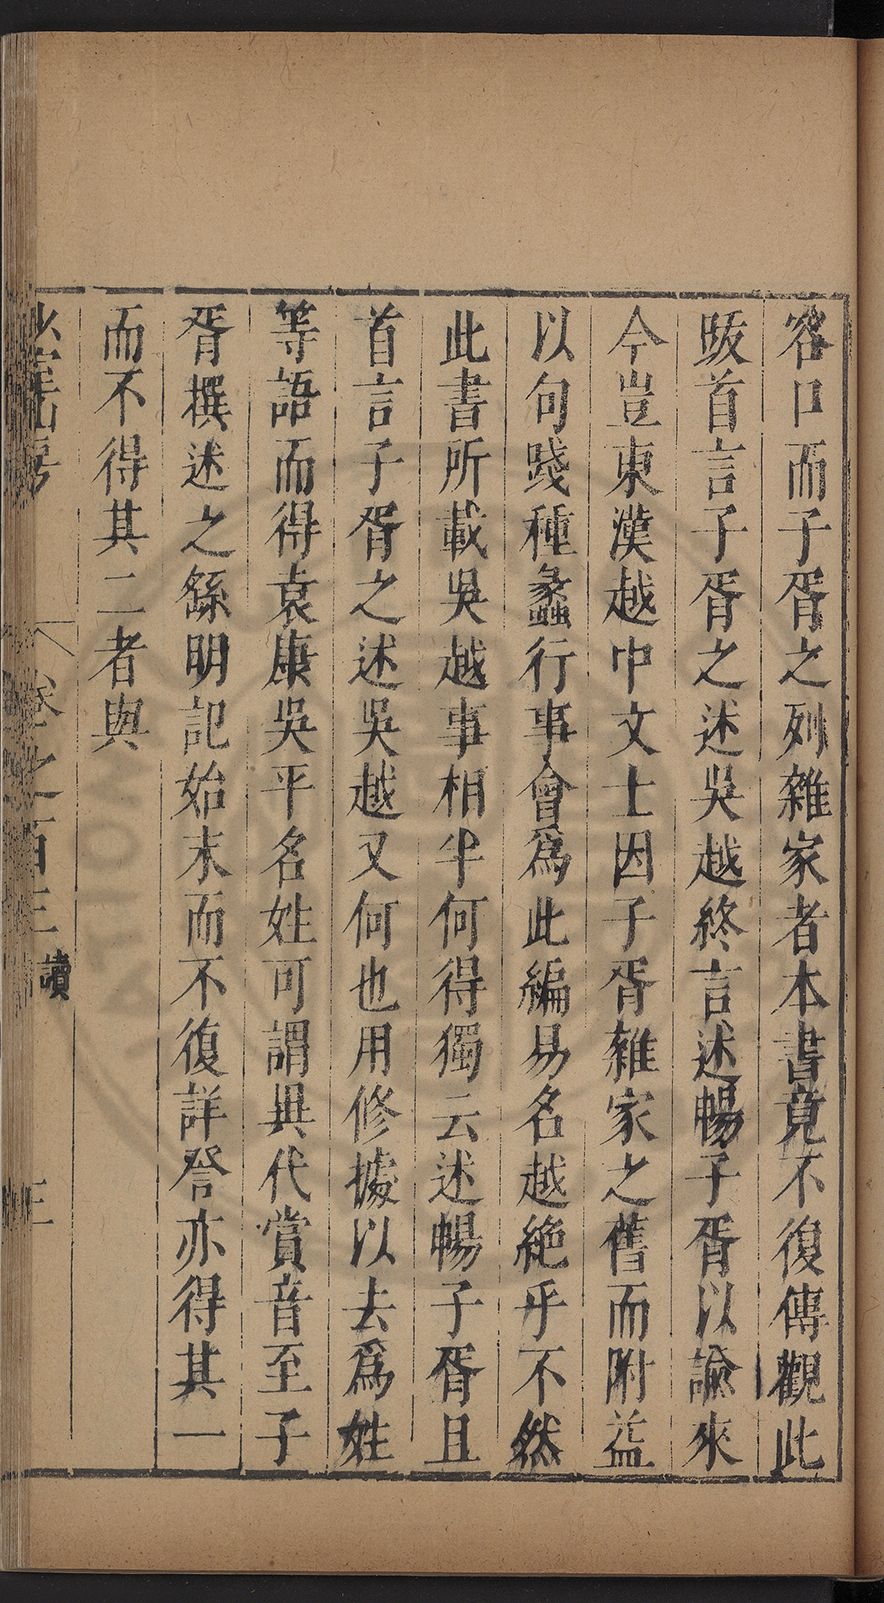 客口而子胥之列雜家者本書竟不復傳觀此
跋首言子胥之述吳越終言述暢子胥以諭來
今豈東漢越中文士因子胥雜家之舊而附益
以句踐種蠡行事會爲此編易名越絶乎不然
此書所載吳越事相半何得獨云述暢子胥且
首言子胥之述吳越又何也用修據以去爲姓
等語而得袁康吳平名姓可謂異代賞音至子
胥撰述之繇明記始末而不復詳詧亦得其一
而不得其二者與
山房
卷之百三
讀
三